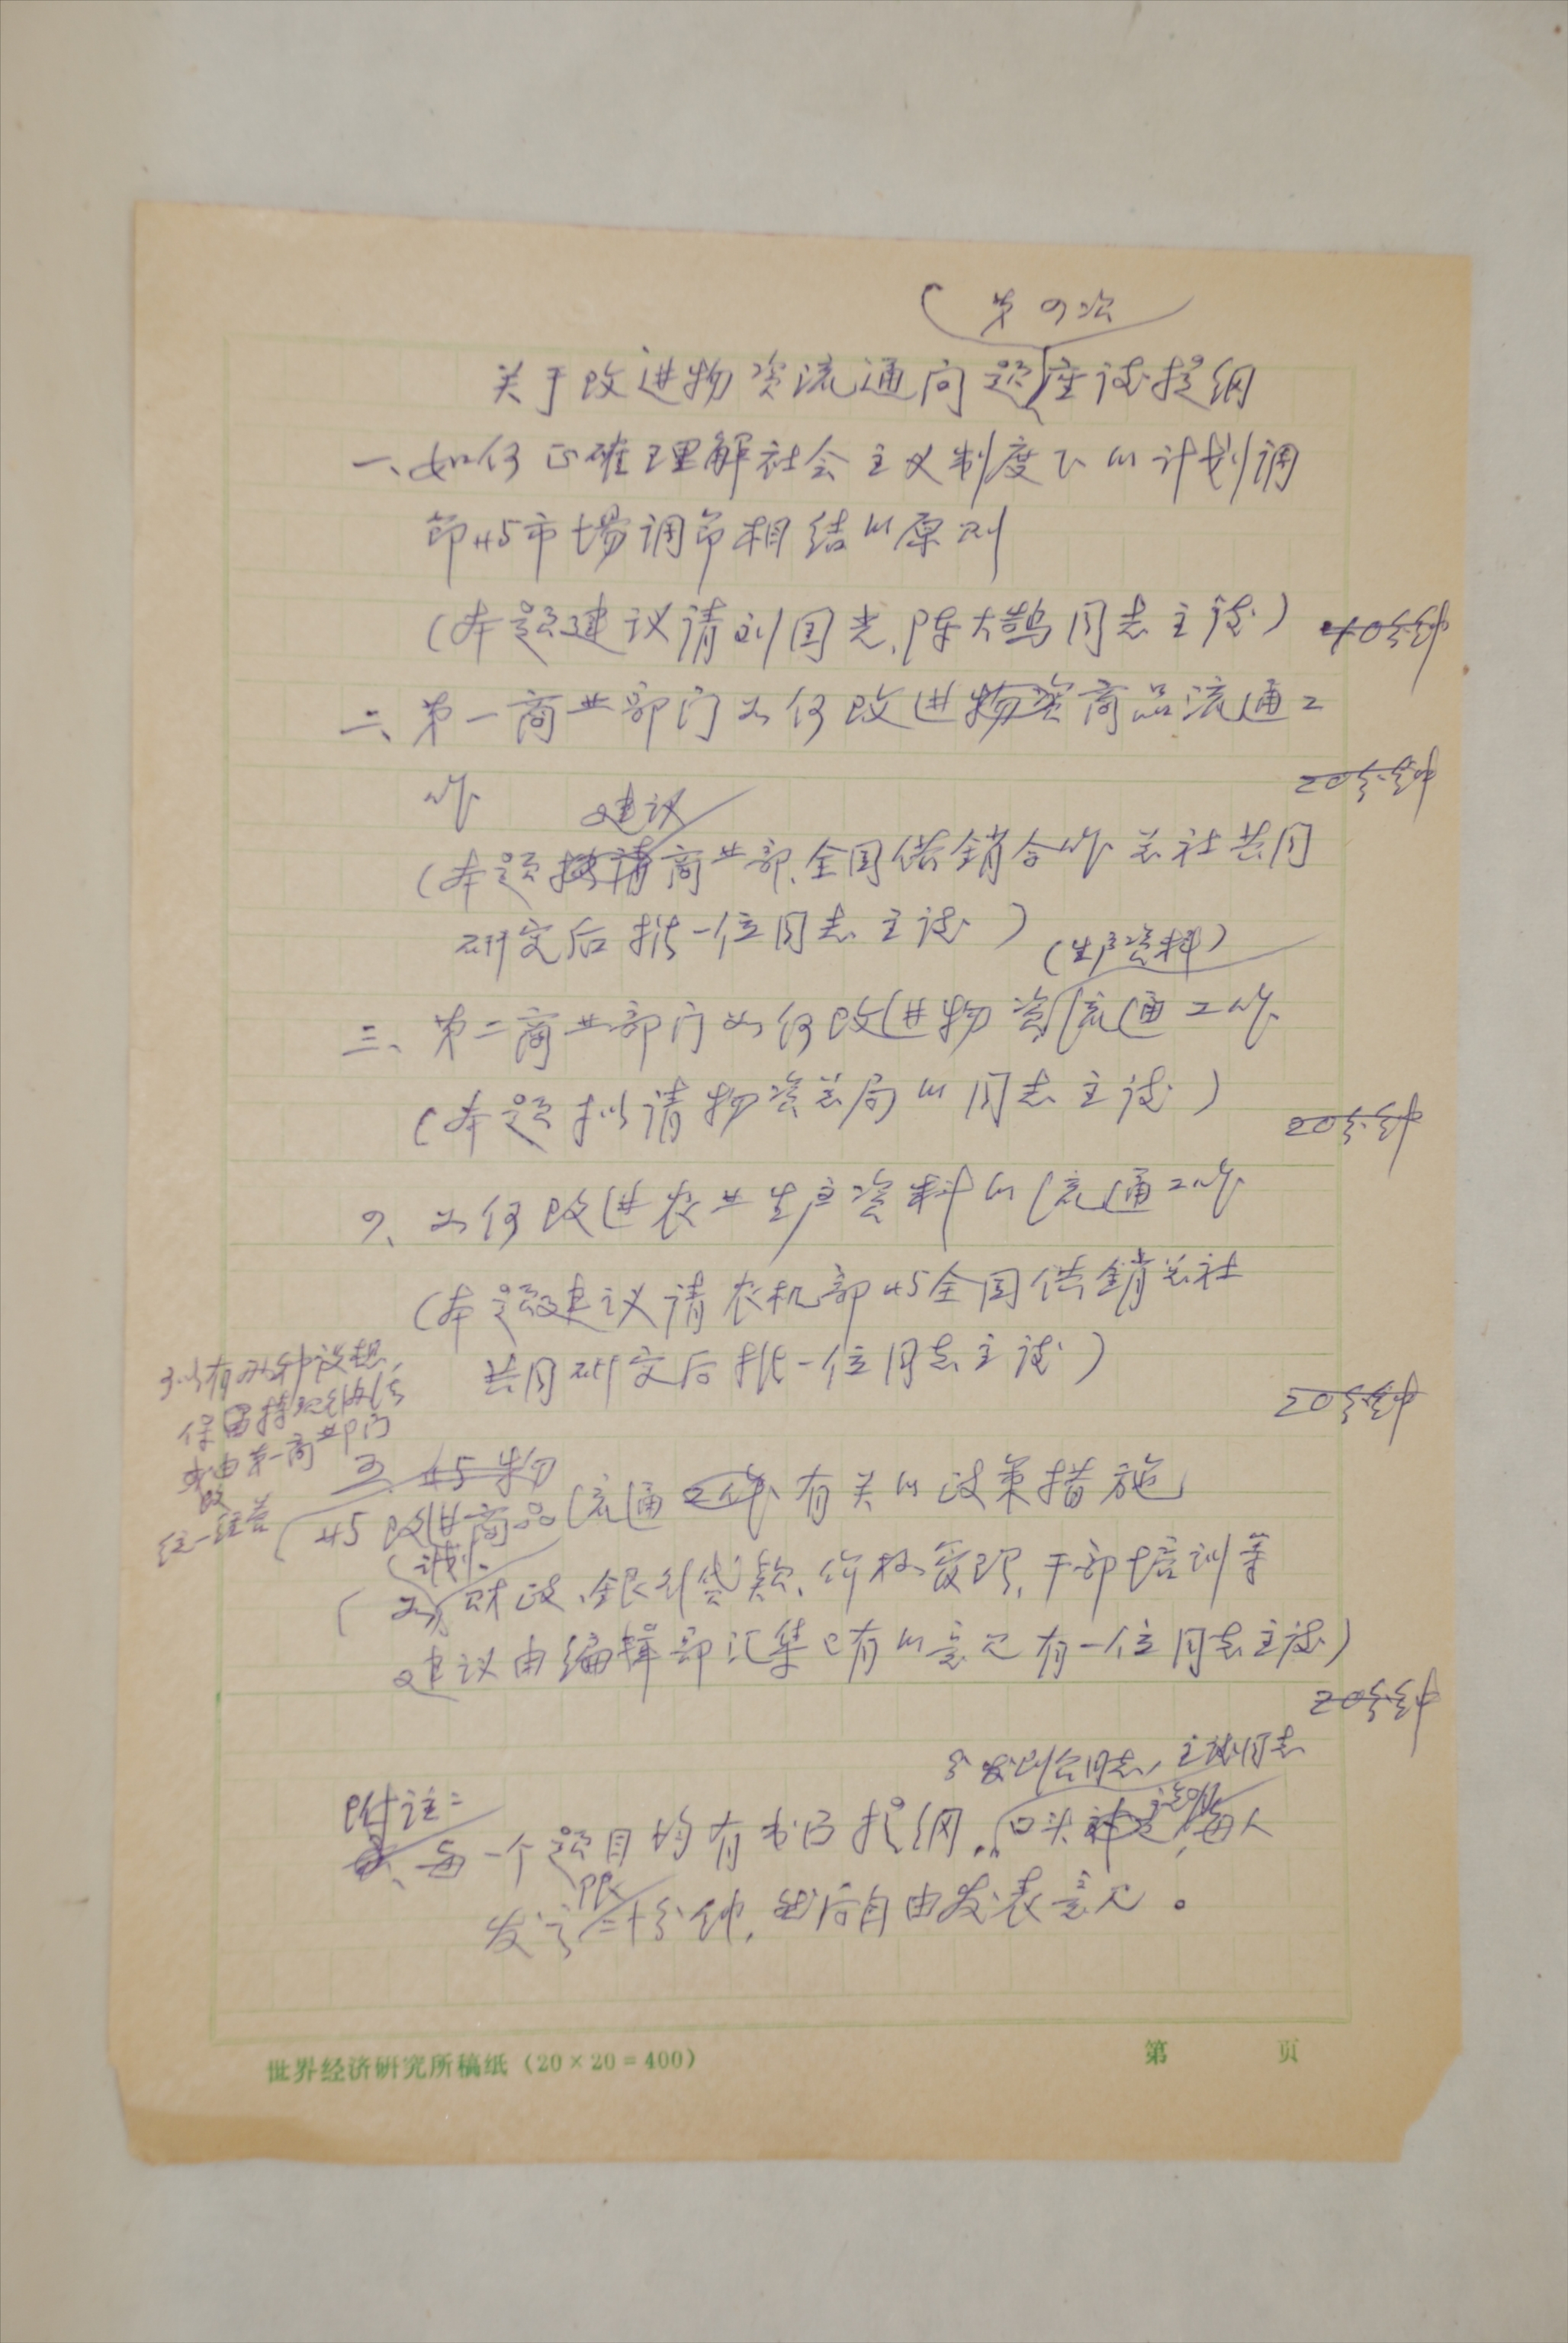 第四次
关于改进物资流通问题座谈提纲
一、如何正确理解社会主义制度下的计划调
节与市场调节相结的原则
(本题建议请刘国光、陈大鹄同志主谈) 40分钟
二、第一商业部门如何改进物资商品流通工
作 20分钟
建议
(本题拟请商业部、全国供销合作总社共同
研究后推一位同志主谈)
(生产资料)
三、第二商业部门如何改进物资流通工作
(本题拟请物资总局的同志主谈) 20分钟
四、如何改进农业生产资料的流通工作
(本题建议请农机部与全国供销总社
共同研究后推一位同志主谈) 20分钟
可以有两种设想,
保留持现行办法
或由第一商业部门
统一经营
五、与物
与改进商品流通工作有关的政策措施
计划、
(如财政、银行贷款、价格管理、干部培训等
建议由编辑部汇集已有的意见有一位同志主谈) 20分钟
分发到会同志, 主谈同志
附注:
每一个题目均有书面提纲, 口头 说明, 每人
限
发言二十分钟, 然后自由发表意见。
世界经济研究所稿纸(20×20=400) 第 页